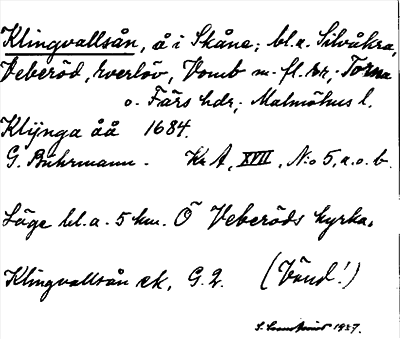 Klingvallsån, å i Skåne; bl.a. Silvåkra,
Veberöd, Everlöv, Vomb m. fl. snr, Torna
o. Färs hdr, Malmöhus l.
Klÿnga åå 1684.
G. Buhrmann. Kr A, XVII, N:o 5, a. o. b.
Läge bl. a. 5 km. Ö Veberöds kyrka.
Klingvallsån ek, G. 2. (Vänd!)
1937.